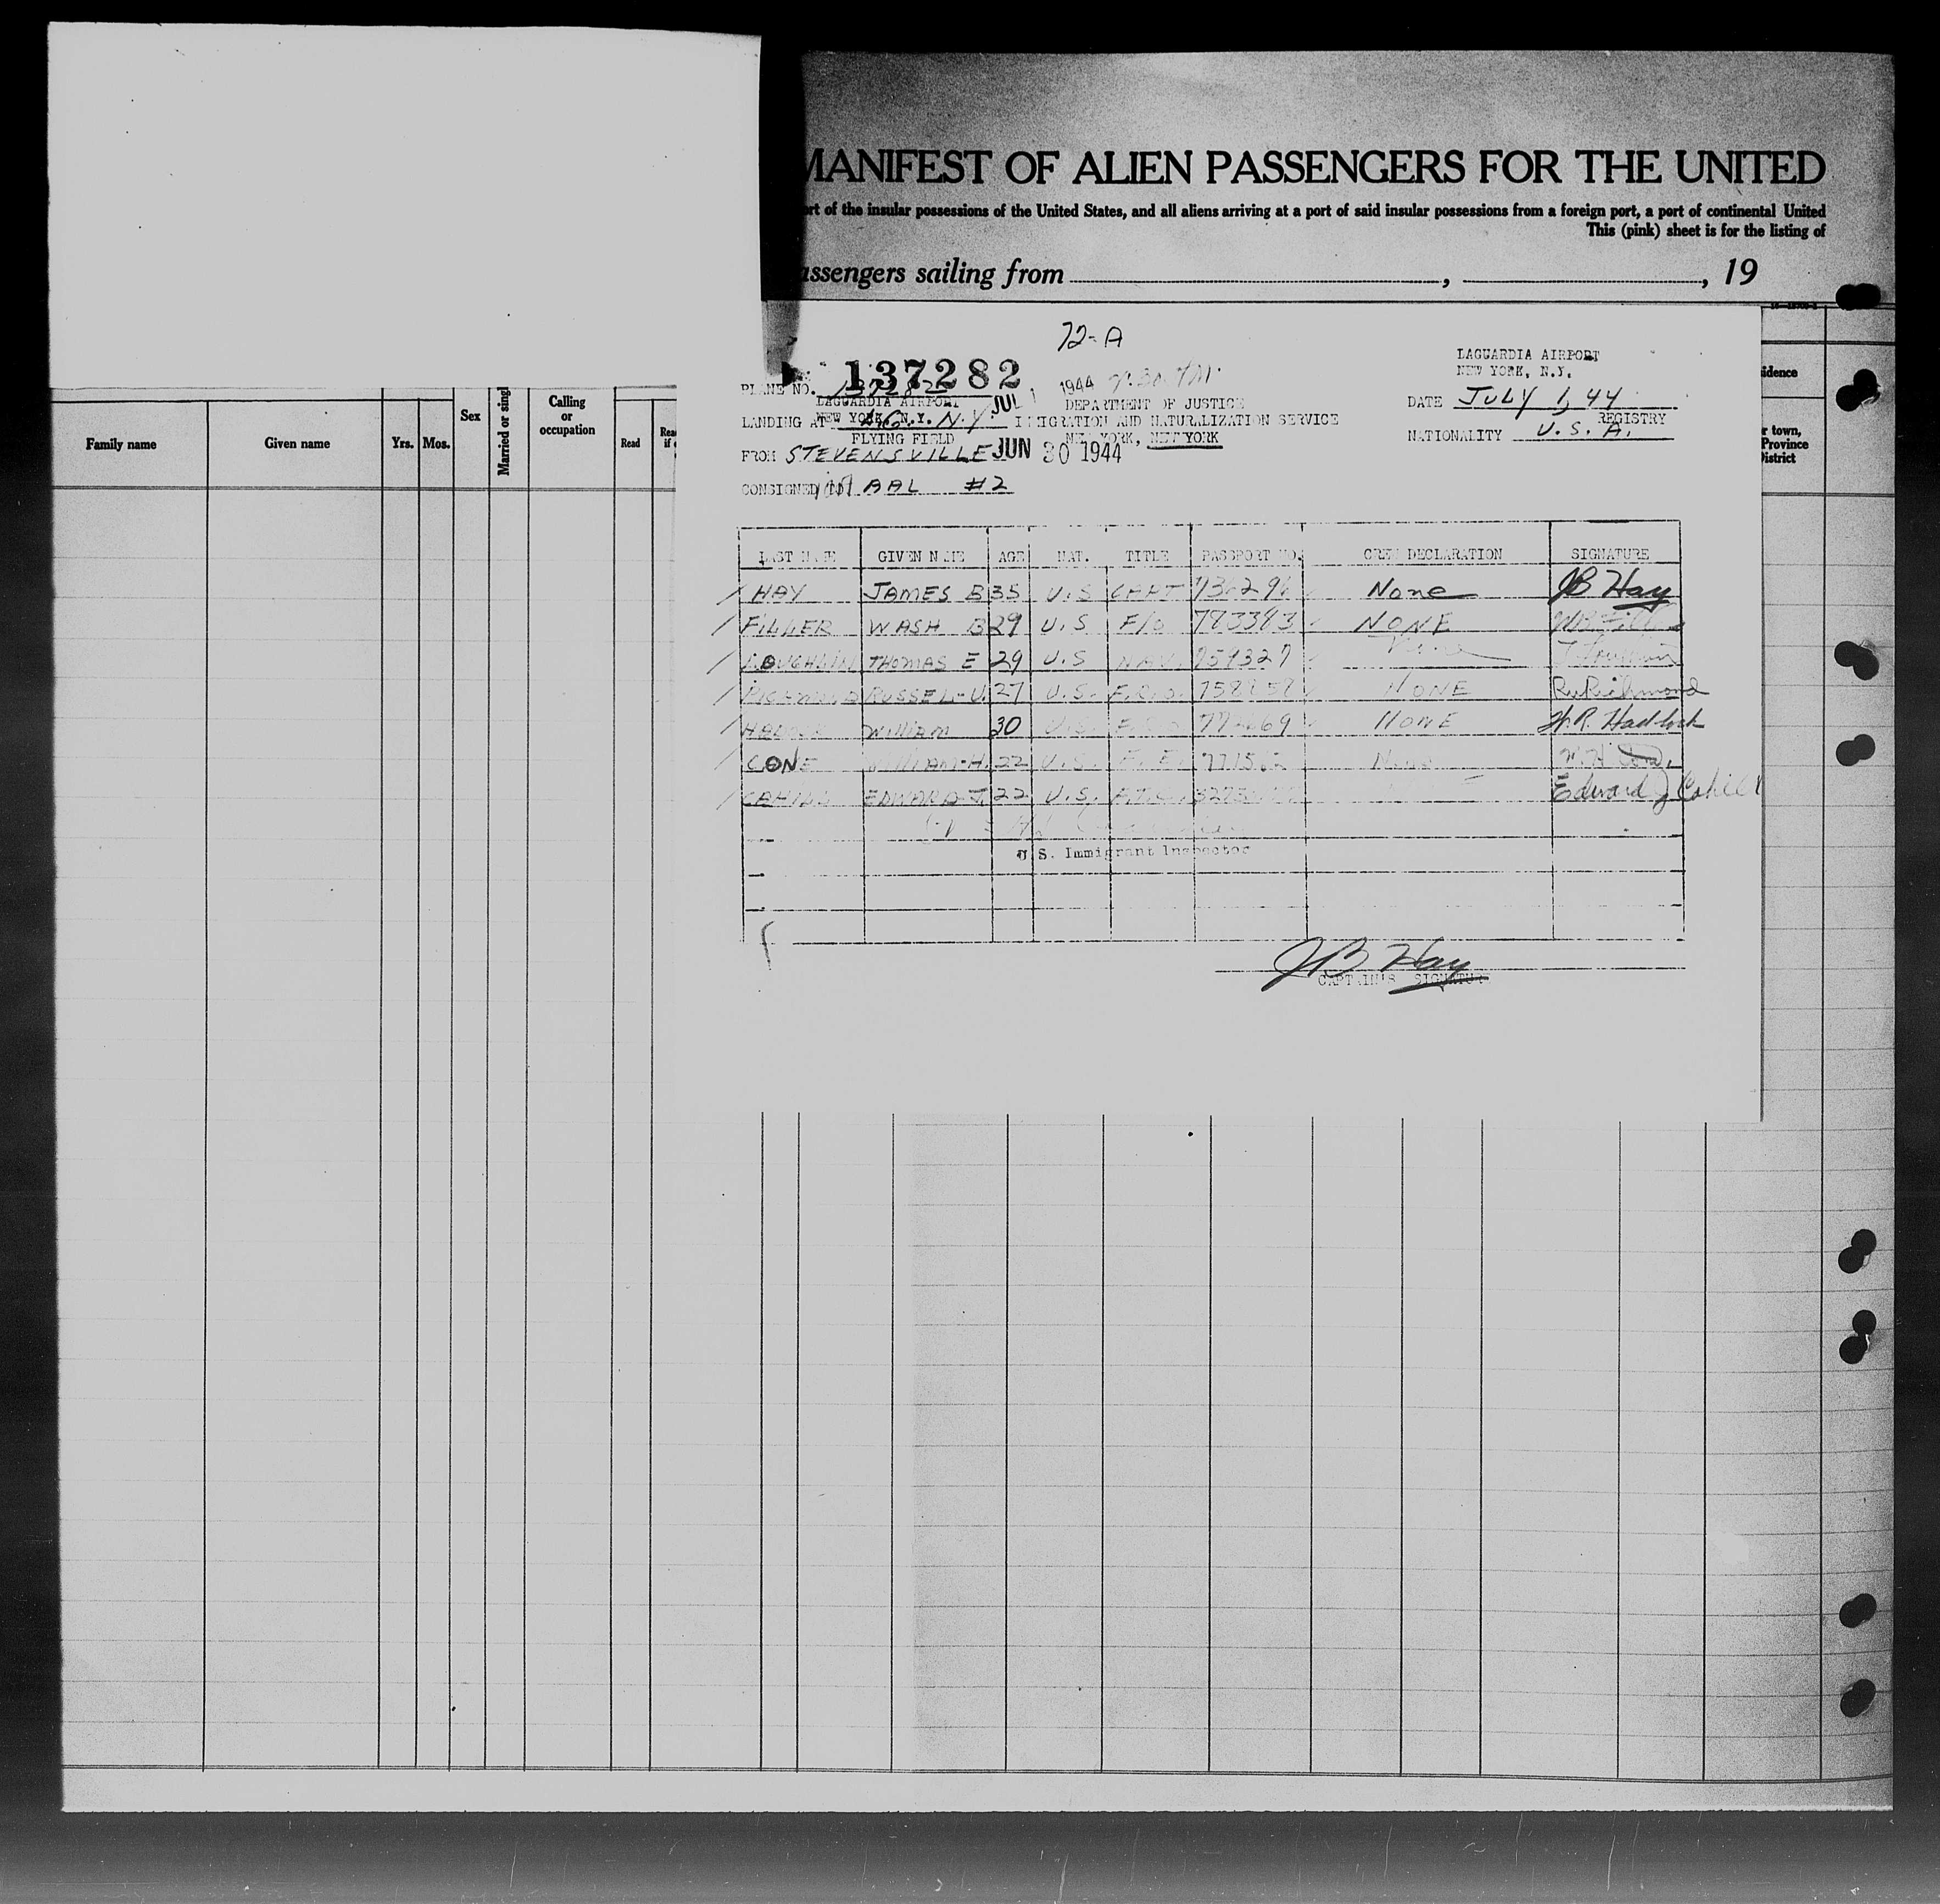 MANIFEST OF ALIEN PASSENGERS FOR THE UNITED
of the insular possessions of the United States, and all aliens arriving at a port of said insular possessions from a foreign port, a port of continental United
This (pink) sheet is for the listing of
assengers sailing from , , 19
72-A
137282
LAGUARDIA AIRPORT
NEW YORK, N.Y.
PLANE NO. 137282 JUL 1 1944
LAGUARDIA AIRPORT DEPARTMENT OF JUSTICE DATE JULY 1, 44
LANDING AT NEW YORK, N.Y. N.Y IMMIGRATION AND NATURALIZATION SERVICE REGISTRY
FLYING FIELD NEW YORK, NEW YORK NATIONALITY U.S.A.
FROM STEVENSVILLE JUN 30 1944
CONSIGNED TO AAL #2
LAST NAME GIVEN NAME AGE NAT. TITLE PASSPORT NO. CREW DECLARATION SIGNATURE
HAY JAMES B 35 U.S CAPT None JB Hay
FILLER WASH B 29 U.S F/O 783383 NONE
LOUGHLIN THOMAS E 29 U.S NAV. 759327 None
RICHMOND RUSSEL-U. 27 U.S. F.R.O. NONE Ru Richmond
WILLIAM 30 U.S. NONE W.R. Hadlock
CONE WILLIAM-H. 22 U.S. F.E. None
CAHILL EDWARD J. 22 U.S. Edward J Cahill
U.S. Immigrant Inspector
JB Hay
CAPTAIN'S SIGNATURE
Family name Given name Yrs. Mos. Sex Married or sing Calling or occupation Read Rea if
idence
r town,
Province
istrict